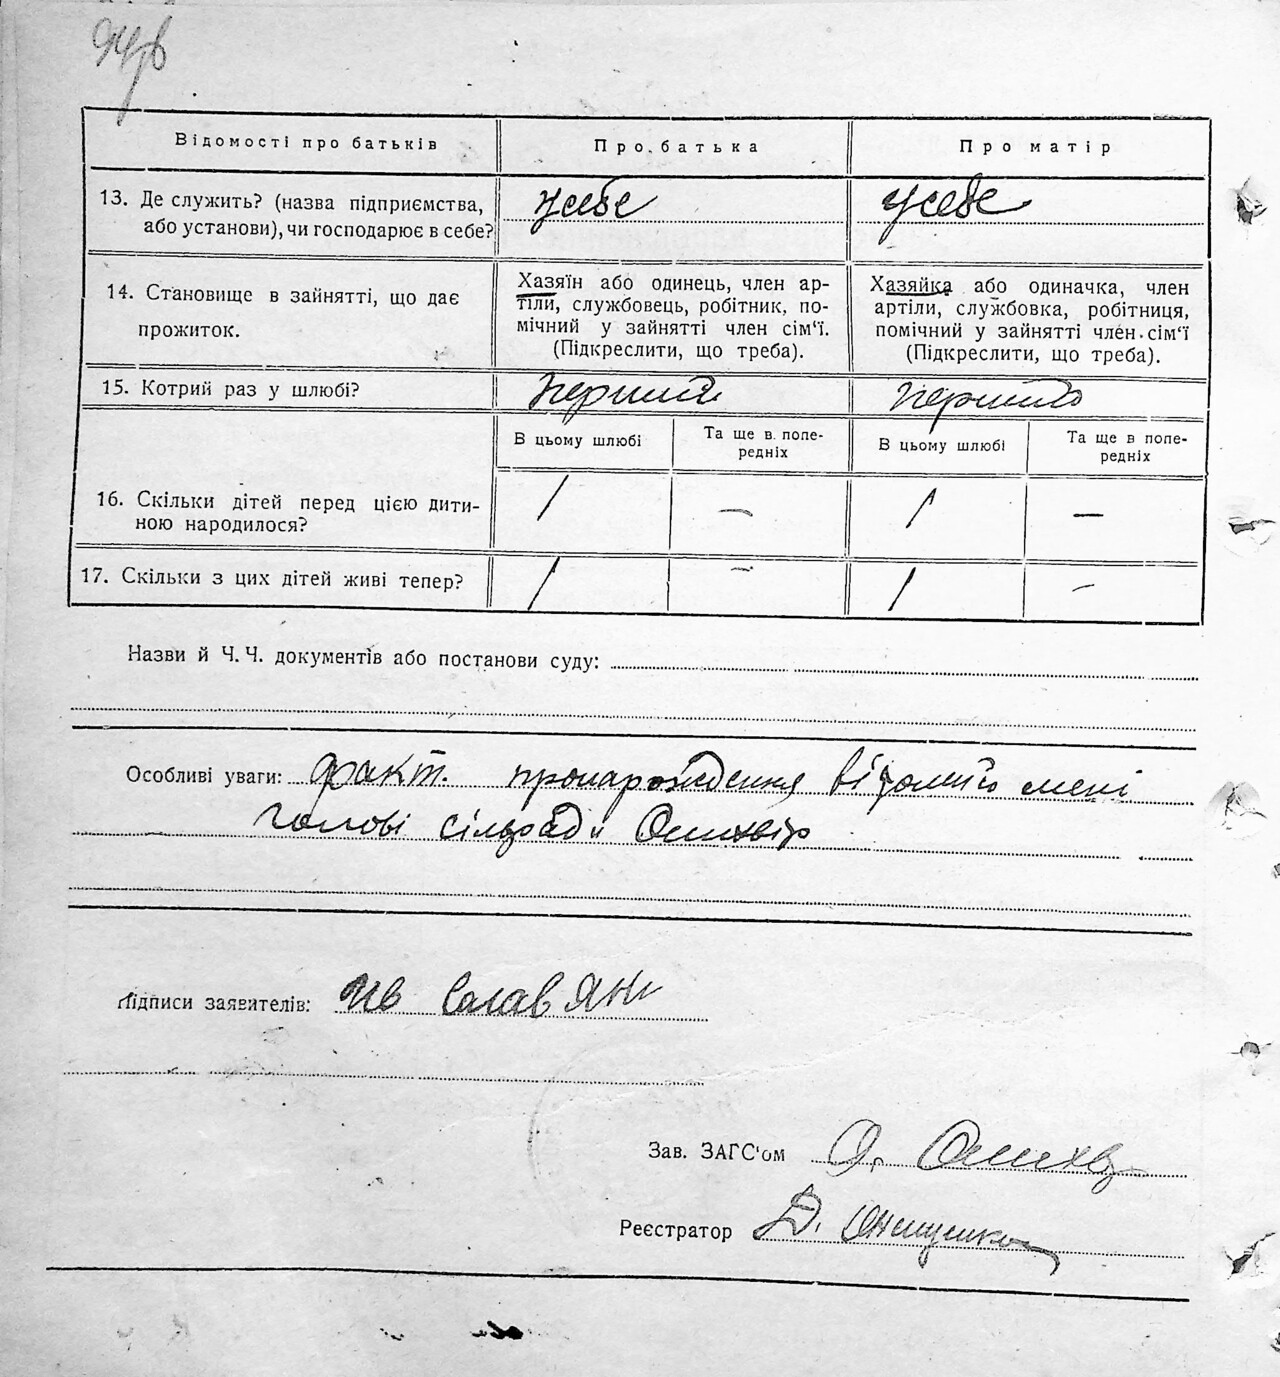 94зв
Відомості про батьків Про батька Про матір
13. Де служить? (назва підприємства, або установи), чи господарює в себе? у себе у себе
14. Становище в зайнятті, що дає прожиток.
Хазяїн або одинець, член ар-
тіли, службовець, робітник, по-
мічний у зайнятті член сім'ї.
(Підкреслити, що треба).
Хазяйка або одиначка, член
артіли, службовка, робітниця,
помічний у зайнятті член сім'ї
(Підкреслити, що треба).
15. Котрий раз у шлюбі? перший перший
В цьому шлюбі Та ще в попе-
редніх В цьому шлюбі Та ще в попе-
редніх
16. Скільки дітей перед цією дити-
ною народилося? 1 — 1 —
17. Скільки з цих дітей живі тепер? 1 — 1 —
Назви й Ч. Ч. документів або постанови суду:
Особливі уваги: факт. пронарождення відомий мені
голові сільради
Підписи заявителів: Ів Слав'ян
Зав. ЗАГС'ом О.
Реєстратор Д. Онищенко